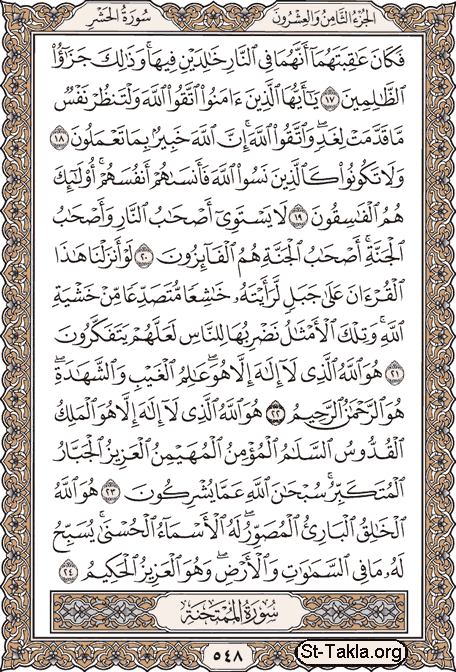 سُورَةُ الحَشْرِ الجُزْءُ الثَّامِنُ وَالعِشْرُونَ
فَكَانَ عَٰقِبَتَهُمَآ أَنَّهُمَا فِي ٱلنَّارِ خَٰلِدَيْنِ فِيهَاۚ وَذَٰلِكَ جَزَٰٓؤُاْ
ٱلظَّٰلِمِينَ ١٧ يَٰٓأَيُّهَا ٱلَّذِينَ ءَامَنُواْ ٱتَّقُواْ ٱللَّهَ وَلْتَنظُرْ نَفْسٌ
مَّا قَدَّمَتْ لِغَدٍۖ وَٱتَّقُواْ ٱللَّهَۚ إِنَّ ٱللَّهَ خَبِيرٌۢ بِمَا تَعْمَلُونَ ١٨
وَلَا تَكُونُواْ كَٱلَّذِينَ نَسُواْ ٱللَّهَ فَأَنسَىٰهُمْ أَنفُسَهُمْۚ أُوْلَٰٓئِكَ
هُمُ ٱلْفَٰسِقُونَ ١٩ لَا يَسْتَوِيٓ أَصْحَٰبُ ٱلنَّارِ وَأَصْحَٰبُ
ٱلْجَنَّةِۚ أَصْحَٰبُ ٱلْجَنَّةِ هُمُ ٱلْفَآئِزُونَ ٢٠ لَوْ أَنزَلْنَا هَٰذَا
ٱلْقُرْءَانَ عَلَىٰ جَبَلٍ لَّرَأَيْتَهُۥ خَٰشِعًا مُّتَصَدِّعًا مِّنْ خَشْيَةِ
ٱللَّهِۚ وَتِلْكَ ٱلْأَمْثَٰلُ نَضْرِبُهَا لِلنَّاسِ لَعَلَّهُمْ يَتَفَكَّرُونَ
٢١ هُوَ ٱللَّهُ ٱلَّذِي لَآ إِلَٰهَ إِلَّا هُوَۖ عَٰلِمُ ٱلْغَيْبِ وَٱلشَّهَٰدَةِۖ
هُوَ ٱلرَّحْمَٰنُ ٱلرَّحِيمُ ٢٢ هُوَ ٱللَّهُ ٱلَّذِي لَآ إِلَٰهَ إِلَّا هُوَ ٱلْمَلِكُ
ٱلْقُدُّوسُ ٱلسَّلَٰمُ ٱلْمُؤْمِنُ ٱلْمُهَيْمِنُ ٱلْعَزِيزُ ٱلْجَبَّارُ
ٱلْمُتَكَبِّرُۚ سُبْحَٰنَ ٱللَّهِ عَمَّا يُشْرِكُونَ ٢٣ هُوَ ٱللَّهُ
ٱلْخَٰلِقُ ٱلْبَارِئُ ٱلْمُصَوِّرُۖ لَهُ ٱلْأَسْمَآءُ ٱلْحُسْنَىٰۚ يُسَبِّحُ
لَهُۥ مَا فِي ٱلسَّمَٰوَٰتِ وَٱلْأَرْضِۖ وَهُوَ ٱلْعَزِيزُ ٱلْحَكِيمُ ٢٤
سُورَةُ المُمْتَحَنَةِ
٥٤٨
St-Takla.org